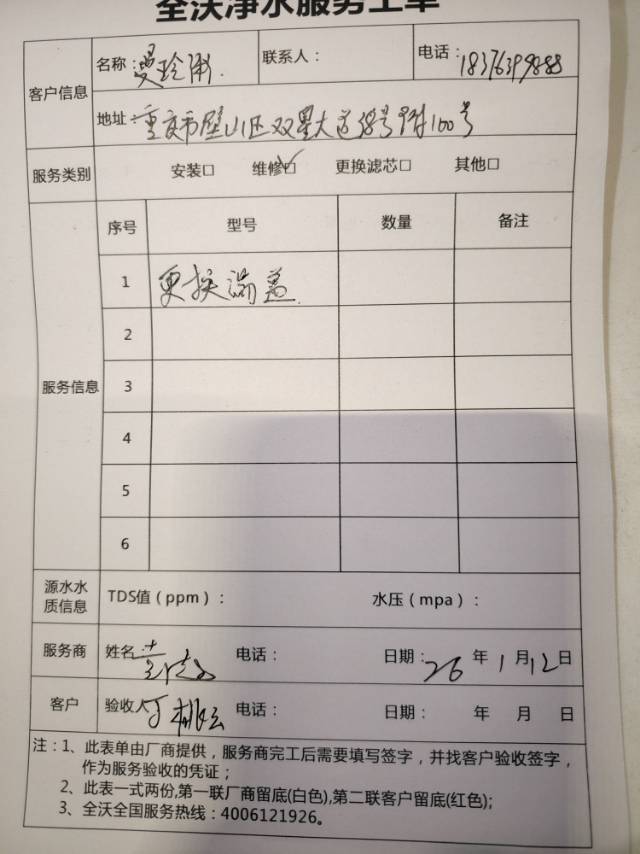 全沃净水服务工单
客户信息 名称: 联系人: 电话:
地址: 重庆市璧山区双星大道 号附100号
服务类别 安装□ 维修☑ 更换滤芯□ 其他□
服务信息 序号 型号 数量 备注
1 更换端盖
2
3
4
5
6
源水水质信息 TDS值(ppm): 水压(mpa):
服务商 姓名 电话: 日期: 26 年 1 月 12 日
客户 验收人 电话: 日期: 年 月 日
注:1、此表单由厂商提供,服务商完工后需要填写签字,并找客户验收签字,
作为服务验收的凭证;
2、此表一式两份,第一联厂商留底(白色),第二联客户留底(红色);
3、全沃全国服务热线:4006121926。